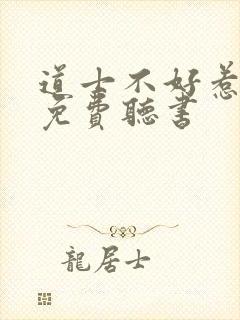 道士不好惹
免費聽書
龍居士